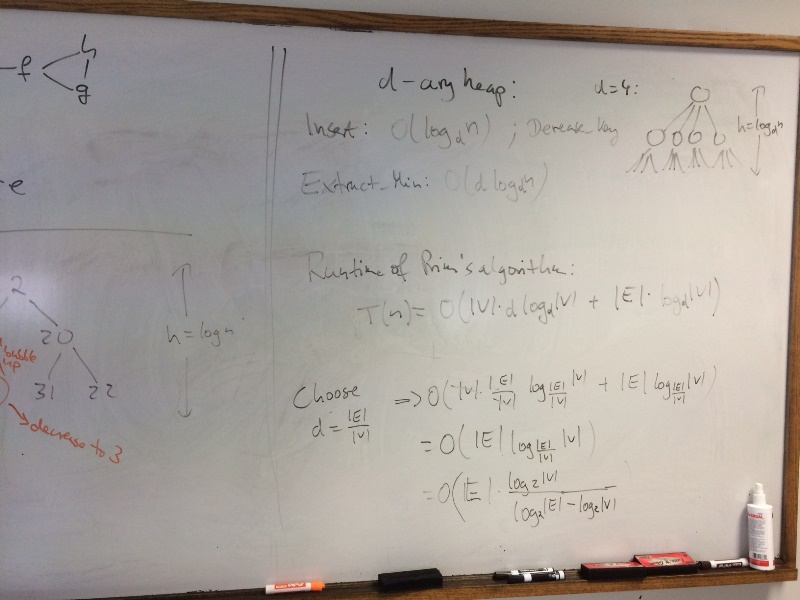 f h
g
e
2
20
31 22
bubble
up
decrease to 3
h = log n
d-ary heap: d=4:
Insert: O(log_d n) ; Decrease_key
h = log_d n
Extract_Min: O(d log_d n)
Runtime of Prim's algorithm:
T(n) = O(|V| · d log_d |V| + |E| · log_d |V|)
Choose
d = |E|/|V|
=> O(|V| · |E|/|V| log_{|E|/|V|} |V| + |E| log_{|E|/|V|} |V|)
= O(|E| log_{|E|/|V|} |V|)
= O(|E| · log_2 |V| / log_2 |E| - log_2 |V|